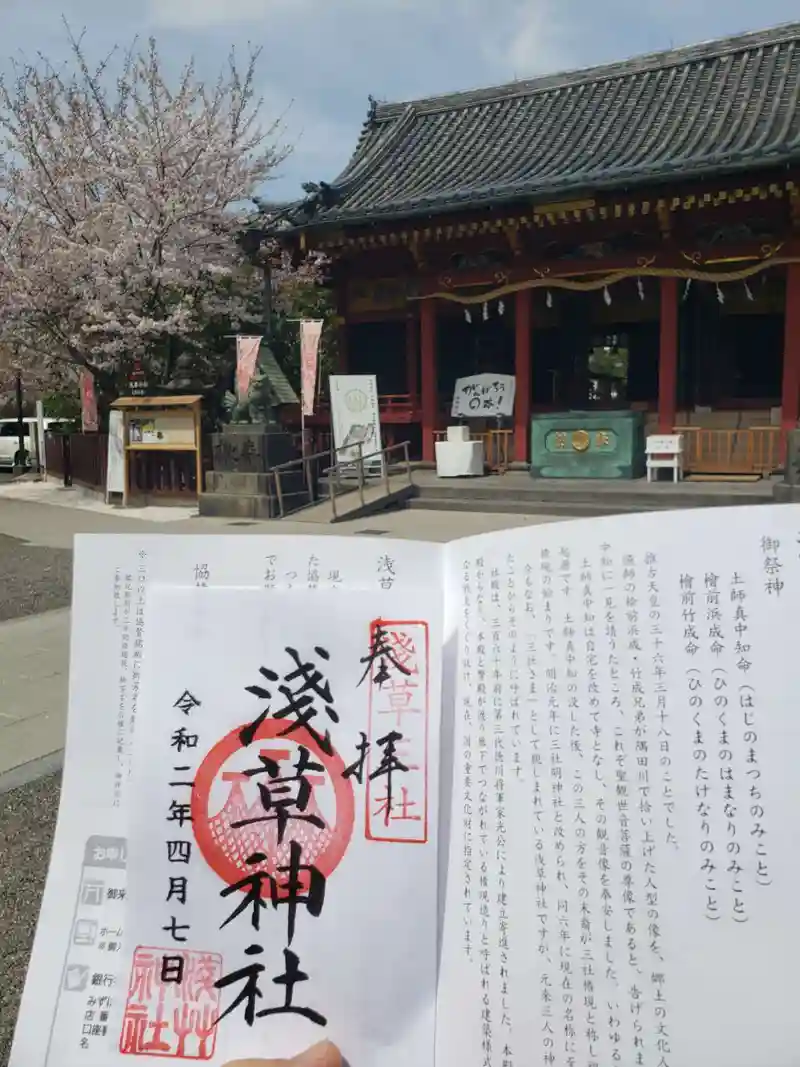 がんばろう
日本!
御祭神
土師真中知命(はじのまつちのみこと)
檜前浜成命(ひのくまのはまなりのみこと)
檜前竹成命(ひのくまのたけなりのみこと)
推古天皇の三十六年三月十八日のことでした。
漁師の檜前浜成・竹成兄弟が隅田川で拾い上げた人型の像を、郷土の文化人
中知に一見を請うたところ、これぞ聖観世音菩薩の尊像であると、告げられま
土師真中知は自宅を改めて寺となし、その観音像を奉安しました。いわゆる
起源です。土師真中知の没した後、この三人の方をその末裔が三社権現と称し
神社の始まりです。明治元年に三社明神社と改められ、同六年に現在の名称に
今もなお、「三社さま」として親しまれている浅草神社ですが、元来三人の神
たことからそのように呼ばれています。
社殿は、三百六十年前に第三代徳川将軍家光公により建立寄進されました。本殿
殿からなり、本殿と幣殿が渡り廊下でつながれている権現造りと呼ばれる建築様式
浅草
現
た協
つ
でお
協
お申し
御来
ホーム
銀行
奉拝
淺草三社
淺草神社
令和二年四月七日
淺草神社